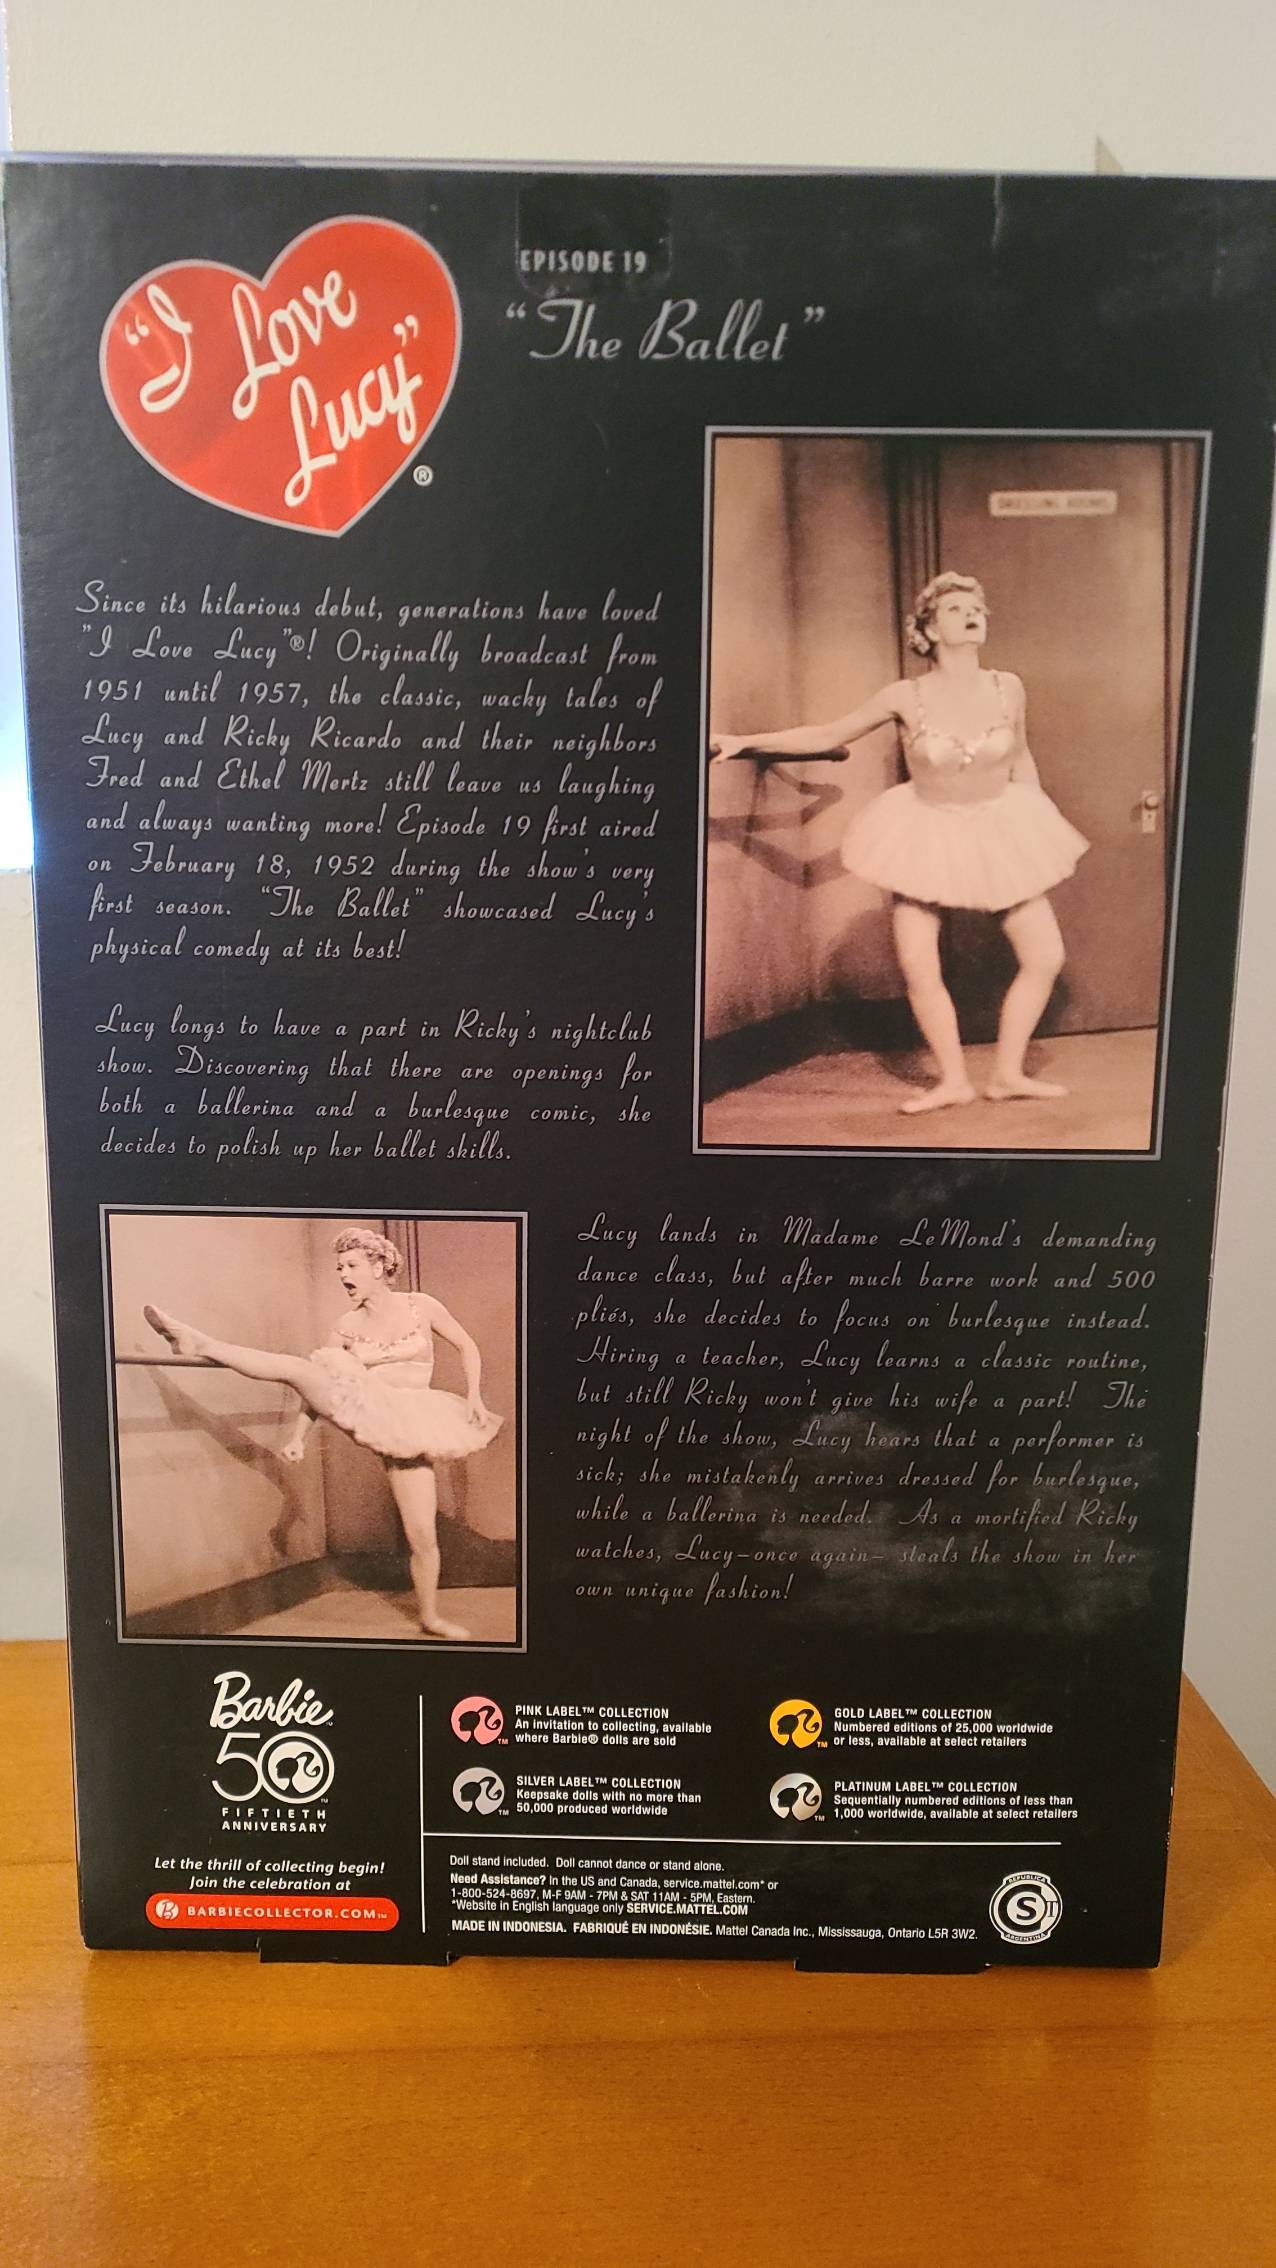 "I Love
Lucy"
®
EPISODE 19
"The Ballet"
Since its hilarious debut, generations have loved
"I Love Lucy"®! Originally broadcast from
1951 until 1957, the classic, wacky tales of
Lucy and Ricky Ricardo and their neighbors
Fred and Ethel Mertz still leave us laughing
and always wanting more! Episode 19 first aired
on February 18, 1952 during the show's very
first season. "The Ballet" showcased Lucy's
physical comedy at its best!
Lucy longs to have a part in Ricky's nightclub
show. Discovering that there are openings for
both a ballerina and a burlesque comic, she
decides to polish up her ballet skills.
DRESSING ROOMS
Lucy lands in Madame LeMond's demanding
dance class, but after much barre work and 500
pliés, she decides to focus on burlesque instead.
Hiring a teacher, Lucy learns a classic routine,
but still Ricky won't give his wife a part! The
night of the show, Lucy hears that a performer is
sick; she mistakenly arrives dressed for burlesque,
while a ballerina is needed. As a mortified Ricky
watches, Lucy—once again— steals the show in her
own unique fashion!
Barbie
50
FIFTIETH
ANNIVERSARY
Let the thrill of collecting begin!
Join the celebration at
B BARBIECOLLECTOR.COM™
PINK LABEL™ COLLECTION
An invitation to collecting, available
where Barbie® dolls are sold
SILVER LABEL™ COLLECTION
Keepsake dolls with no more than
50,000 produced worldwide
GOLD LABEL™ COLLECTION
Numbered editions of 25,000 worldwide
or less, available at select retailers
PLATINUM LABEL™ COLLECTION
Sequentially numbered editions of less than
1,000 worldwide, available at select retailers
Doll stand included. Doll cannot dance or stand alone.
Need Assistance? In the US and Canada, service.mattel.com* or
1-800-524-8697, M-F 9AM - 7PM & SAT 11AM - 5PM, Eastern.
*Website in English language only SERVICE.MATTEL.COM
MADE IN INDONESIA. FABRIQUÉ EN INDONÉSIE. Mattel Canada Inc., Mississauga, Ontario L5R 3W2.
REPUBLICA
S
ARGENTINA